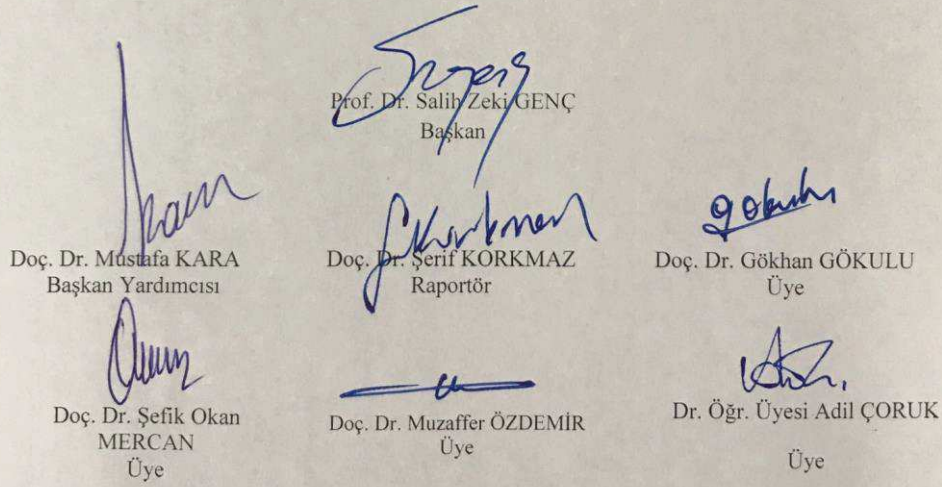 Prof. Dr. Salih Zeki GENÇ
Başkan
Doç. Dr. Mustafa KARA
Başkan Yardımcısı
Doç. Dr. Şerif KORKMAZ
Raportör
Doç. Dr. Gökhan GÖKULU
Üye
Doç. Dr. Şefik Okan
MERCAN
Üye
Doç. Dr. Muzaffer ÖZDEMİR
Üye
Dr. Öğr. Üyesi Adil ÇORUK
Üye